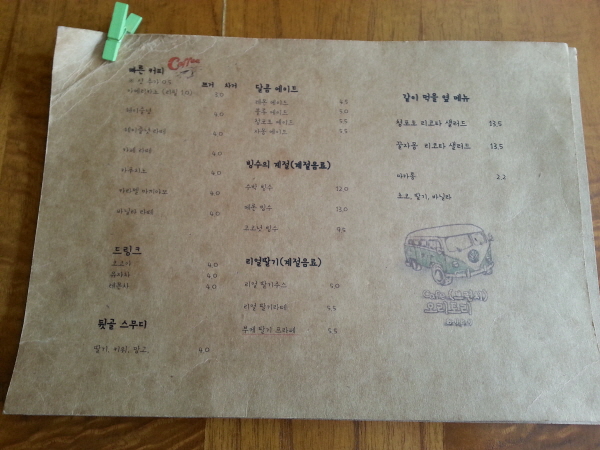 빠른 커피 Coffee
뜨거 차거
아메리카노 (리필 1.0) 3.0
더치출항 4.0
더치출항 라떼
카페 라떼 4.0
카푸치노 4.0
카라멜 마끼아또 4.0
바닐라 라떼 4.0
드링크
초코사 4.0
유자차 4.0
레몬차 4.0
뒷골 스무디
딸기, 키위, 망고 4.0
달콤 에이드
레몬 에이드 4.5
블루 에이드 5.0
청포도 에이드 5.5
자몽 에이드 5.5
빙수의 계절(계절음료)
수박 빙수 12.0
레몬 빙수 13.0
오오닌 빙수 9.5
리얼딸기(계절음료)
리얼 딸기쥬스 5.0
리얼 딸기라떼 5.5
부케 딸기 프라페 5.5
같이 먹을 밥 메뉴
청포도 리코타 샐러드 13.5
꿀자몽 리코타 샐러드 13.5
마카롱 2.2
초코, 딸기, 바닐라